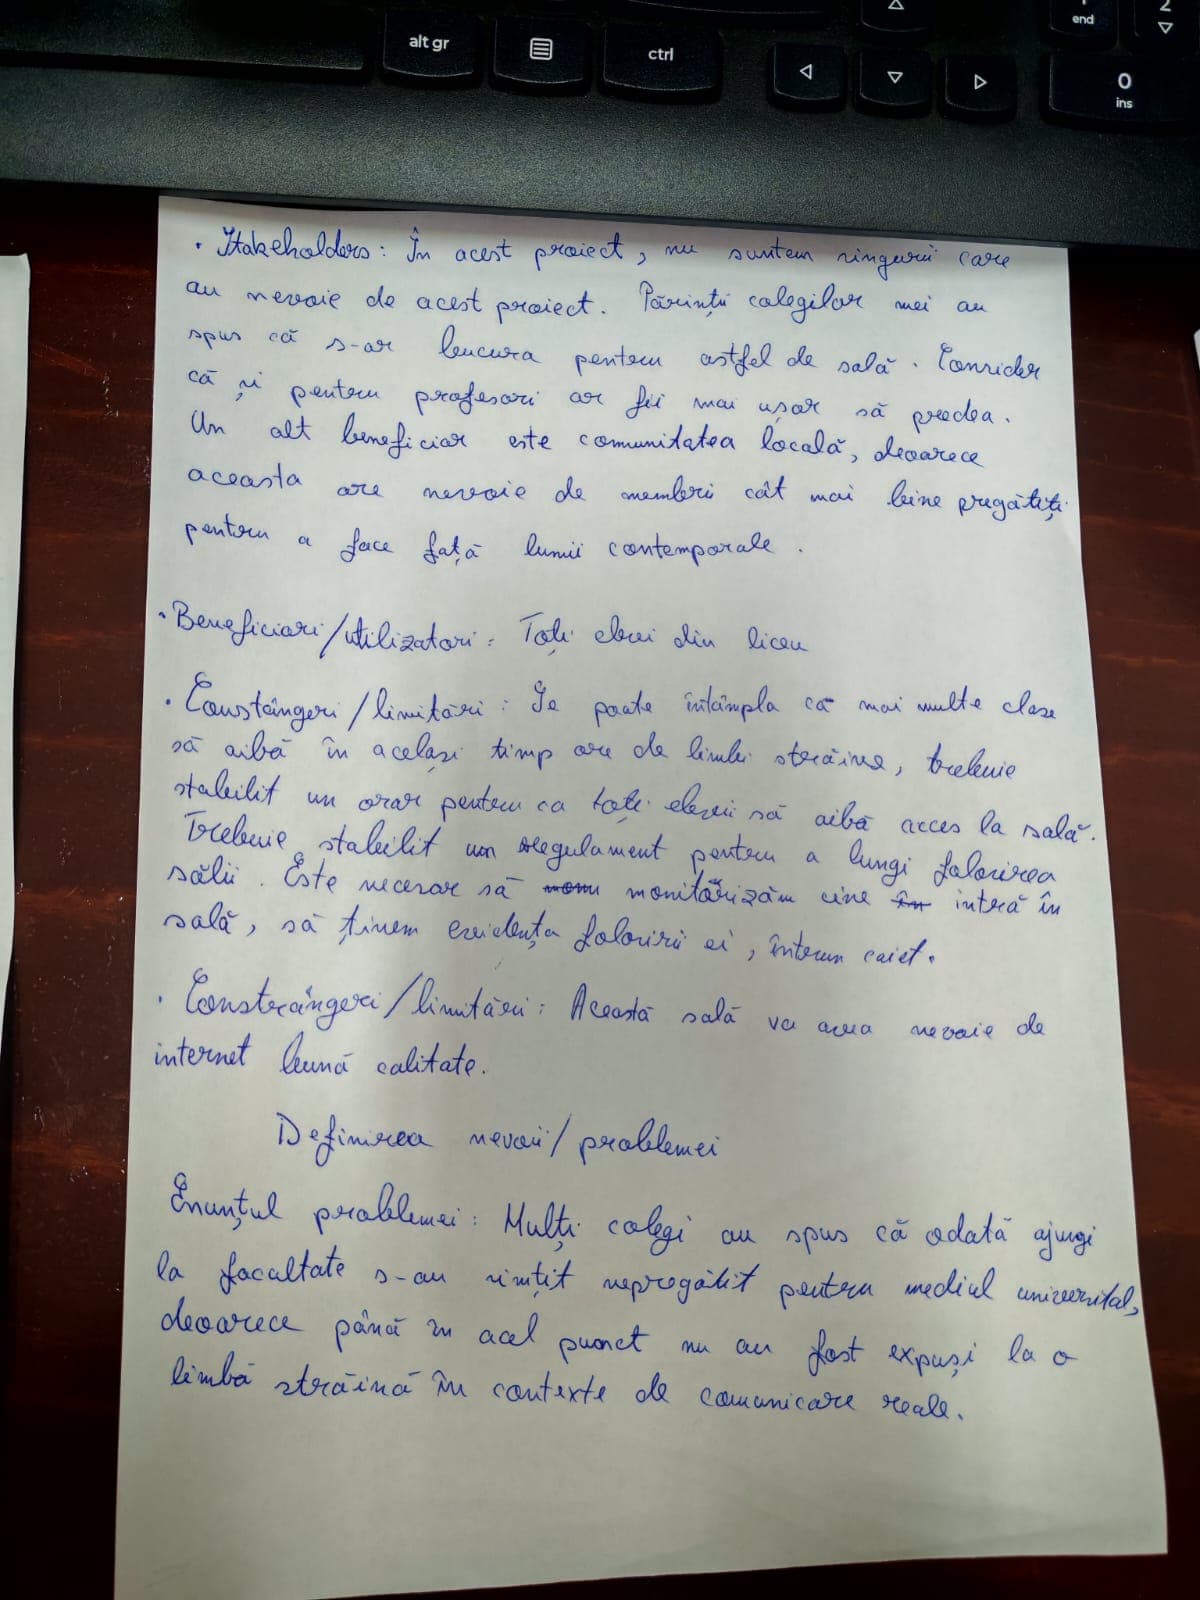 alt gr
ctrl
end
2
0
ins
• Stakeholders: În acest proiect, nu suntem singurii care
au nevoie de acest proiect. Părinții colegilor mei au
spus că s-ar bucura pentru astfel de sală. Consider
că și pentru profesori ar fii mai ușor să predea.
Un alt beneficiar este comunitatea locală, deoarece
aceasta are nevoie de membrii cât mai bine pregătiți
pentru a face față lumii contemporale.
• Beneficiari/utilizatori: Toți elevi din liceu
• Constângeri/limitări: Se poate întâmpla că mai multe clase
să aibă în același timp ore de limbi străine, trebuie
stabilit un orar pentru ca toți elevii să aibă acces la sală.
Trebuie stabilit un regulament pentru a lungi folosirea
sălii. Este necesar să monitorizăm cine intră în
sală, să ținem evidența folosirii ei, întrun caiet.
• Constrângeri/limitări: Această sală va avea nevoie de
internet bună calitate.
Definirea nevoii/problemei
Enunțul problemei: Mulți colegi au spus că odată ajungi
la facultate s-au simțit nepregătit pentru mediul universital,
deoarece până în acel punct nu au fost expuși la o
limbă străină în contexte de comunicare reale.